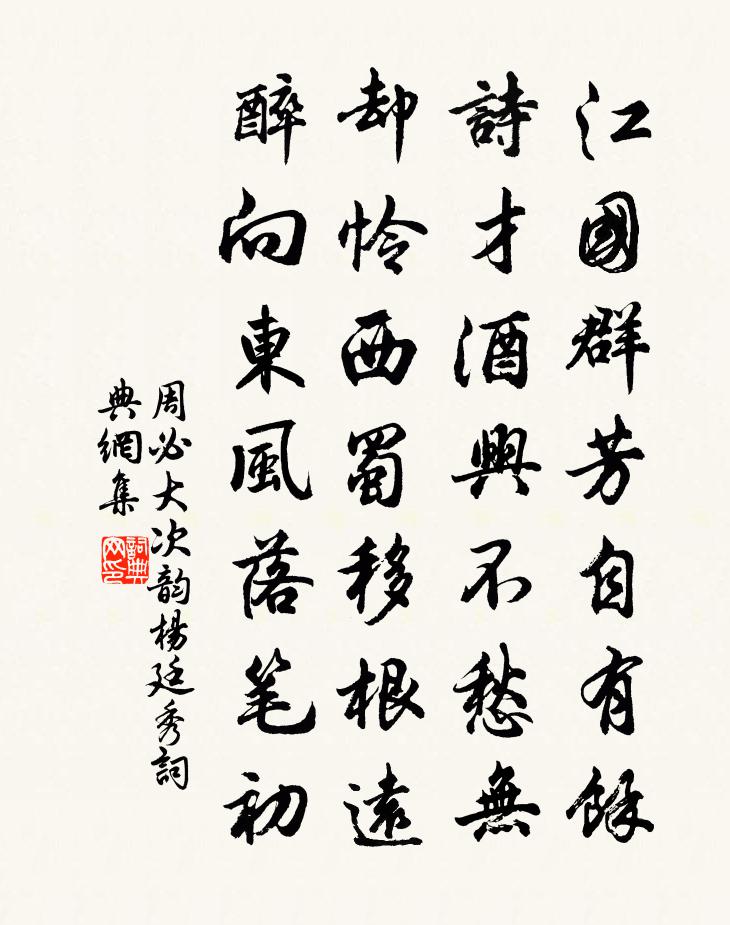 江國群芳自有餘
詩才酒興不愁無
却怜西蜀移根遠
醉向東風落笔初
周必大次韵楊廷秀詞
典網集
詞典網印